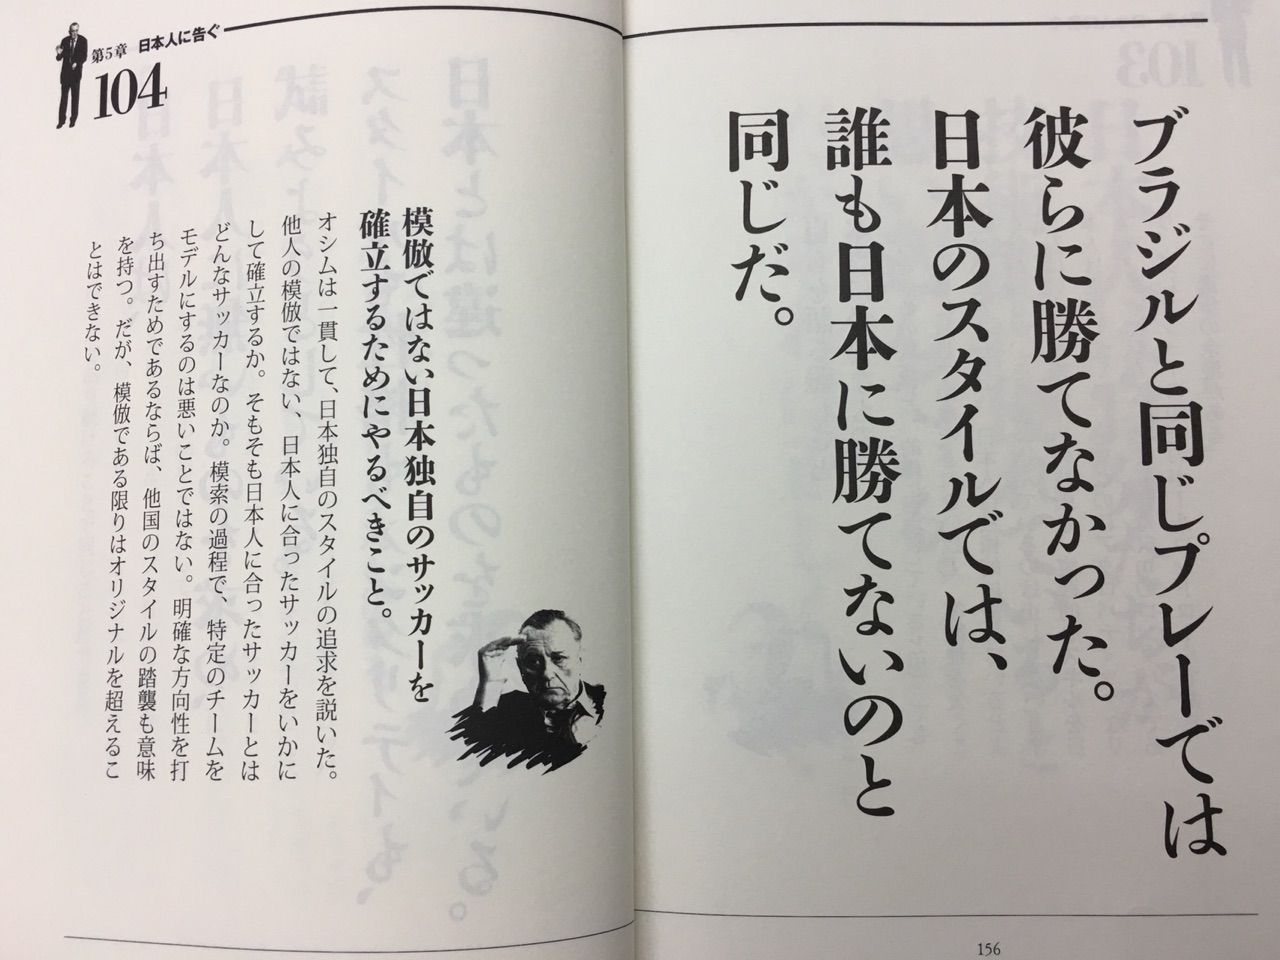 ブラジルと同じプレーでは
彼らに勝てなかった。
日本のスタイルでは、
誰も日本に勝てないのと
同じだ。
156
第5章 日本人に告ぐ
104
模倣ではない日本独自のサッカーを
確立するためにやるべきこと。
オシムは一貫して、日本独自のスタイルの追求を説いた。
他人の模倣ではない、日本人に合ったサッカーをいかに
して確立するか。そもそも日本人に合ったサッカーとは
どんなサッカーなのか。模索の過程で、特定のチームを
モデルにするのは悪いことではない。明確な方向性を打
ち出すためであるならば、他国のスタイルの踏襲も意味
を持つ。だが、模倣である限りはオリジナルを超えるこ
とはできない。